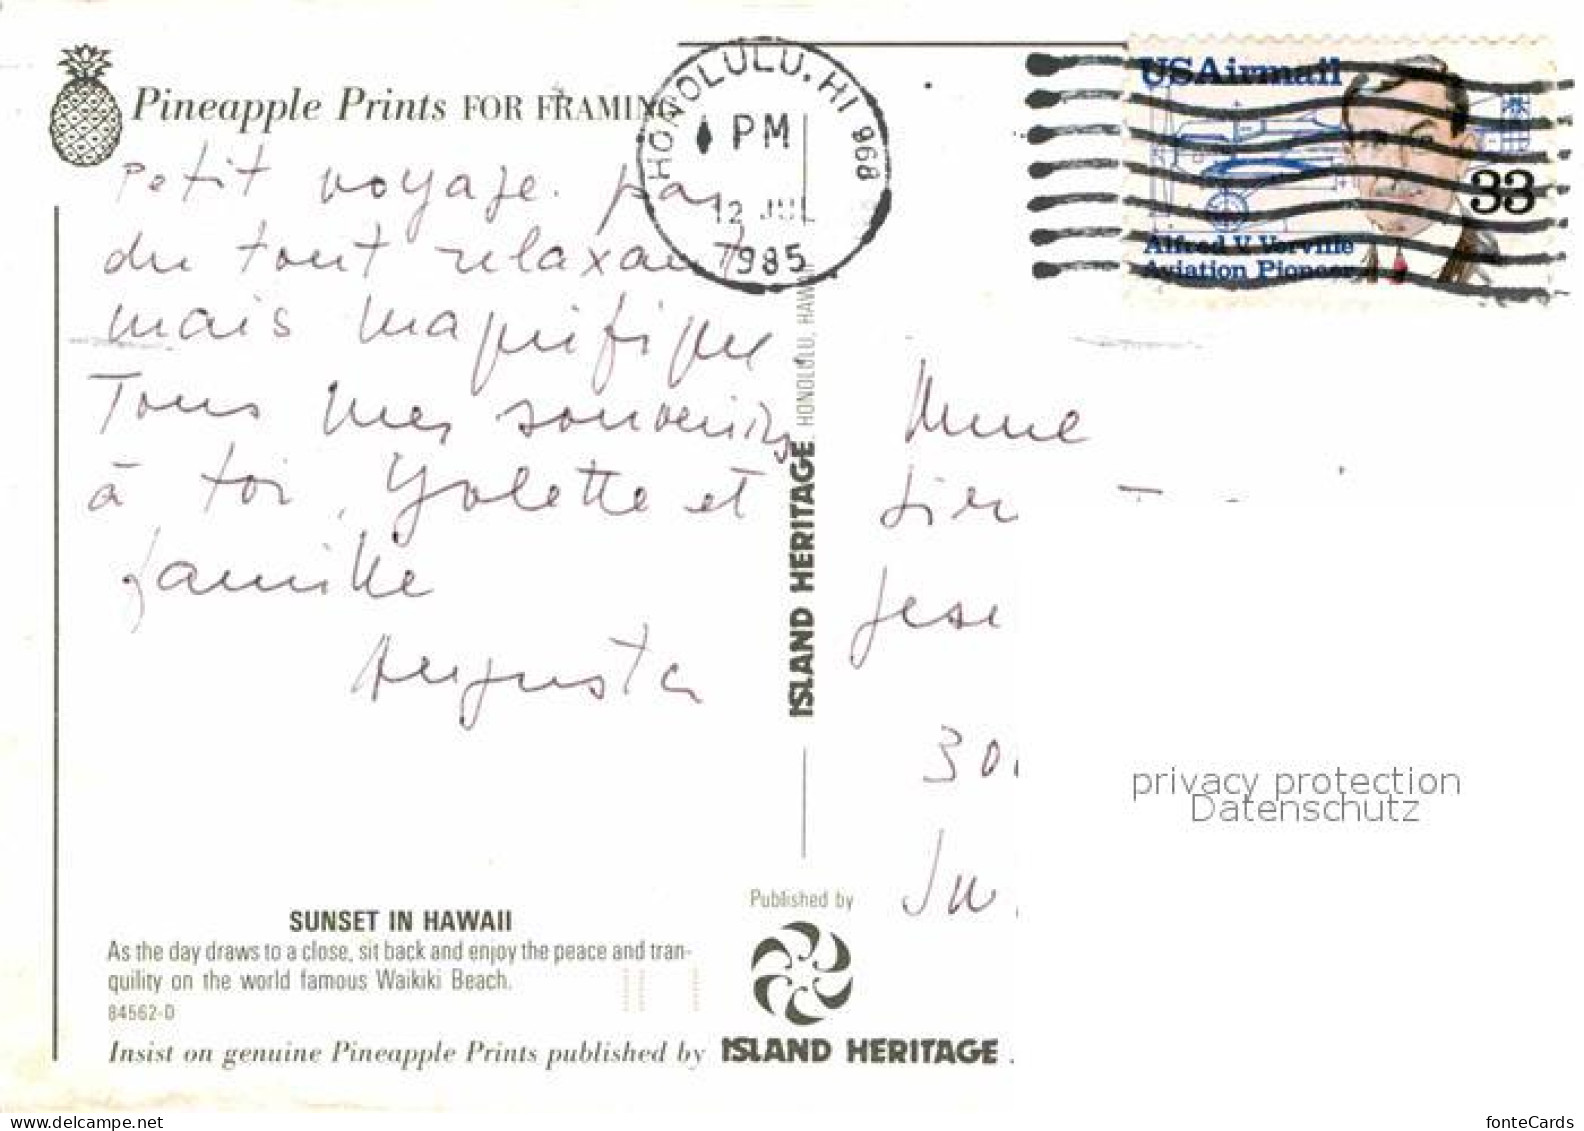 Pineapple Prints FOR FRAMING
HONOLULU, HI 968
PM
12 JUL
1985
USAirmail
33
Alfred V. Verville
Aviation Pioneer
Petit voyage. pas
du tout relaxant
mais magnifique.
Tous mes souvenirs
à toi, Yolette et
famille
Augusta
Mme
30
ISLAND HERITAGE HONOLULU, HAWAII
privacy protection
Datenschutz
SUNSET IN HAWAII
As the day draws to a close, sit back and enjoy the peace and tran-
quility on the world famous Waikiki Beach.
84562-D
Published by
Insist on genuine Pineapple Prints published by ISLAND HERITAGE.
www.delcampe.net
fonteCards